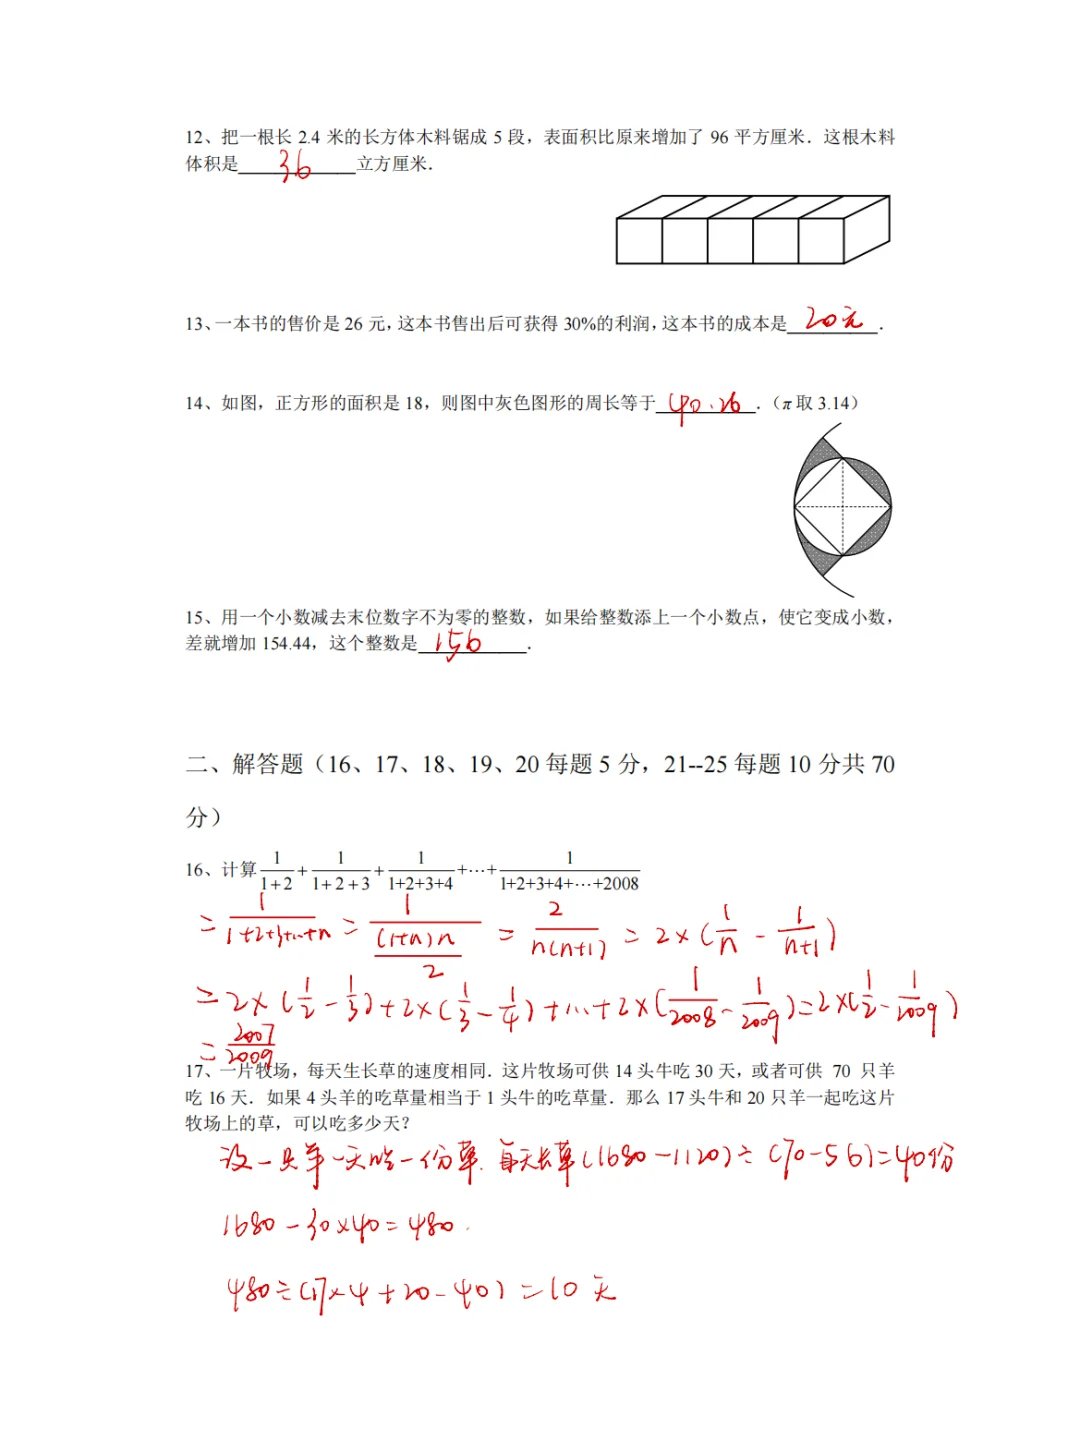 12、把一根长 2.4 米的长方体木料锯成 5 段，表面积比原来增加了 96 平方厘米．这根木料
体积是 36 立方厘米．
13、一本书的售价是 26 元，这本书售出后可获得 30%的利润，这本书的成本是 20元 ．
14、如图，正方形的面积是 18，则图中灰色图形的周长等于 40.26 ．（π 取 3.14）
15、用一个小数减去末位数字不为零的整数，如果给整数添上一个小数点，使它变成小数，
差就增加 154.44，这个整数是 156 ．
二、解答题（16、17、18、19、20 每题 5 分，21--25 每题 10 分共 70
分）
16、计算 1/(1+2) + 1/(1+2+3) + 1/(1+2+3+4) +⋯+ 1/(1+2+3+4+⋯+2008)
= 1/(1+2+3+…+n) = 1/((1+n)n/2) = 2/(n(n+1)) = 2×(1/n - 1/(n+1))
= 2×(1/2 - 1/3)+2×(1/3 - 1/4)+…+2×(1/2008 - 1/2009)=2×(1/2 - 1/2009)
= 2007/2009
17、一片牧场，每天生长草的速度相同．这片牧场可供 14 头牛吃 30 天，或者可供 70 只羊
吃 16 天．如果 4 头羊的吃草量相当于 1 头牛的吃草量．那么 17 头牛和 20 只羊一起吃这片
牧场上的草，可以吃多少天？
设一只羊一天吃一份草．每天长草(1680-1120)÷(70-56)=40份
1680-30×40=480．
480÷(17×4+20-40)=10天